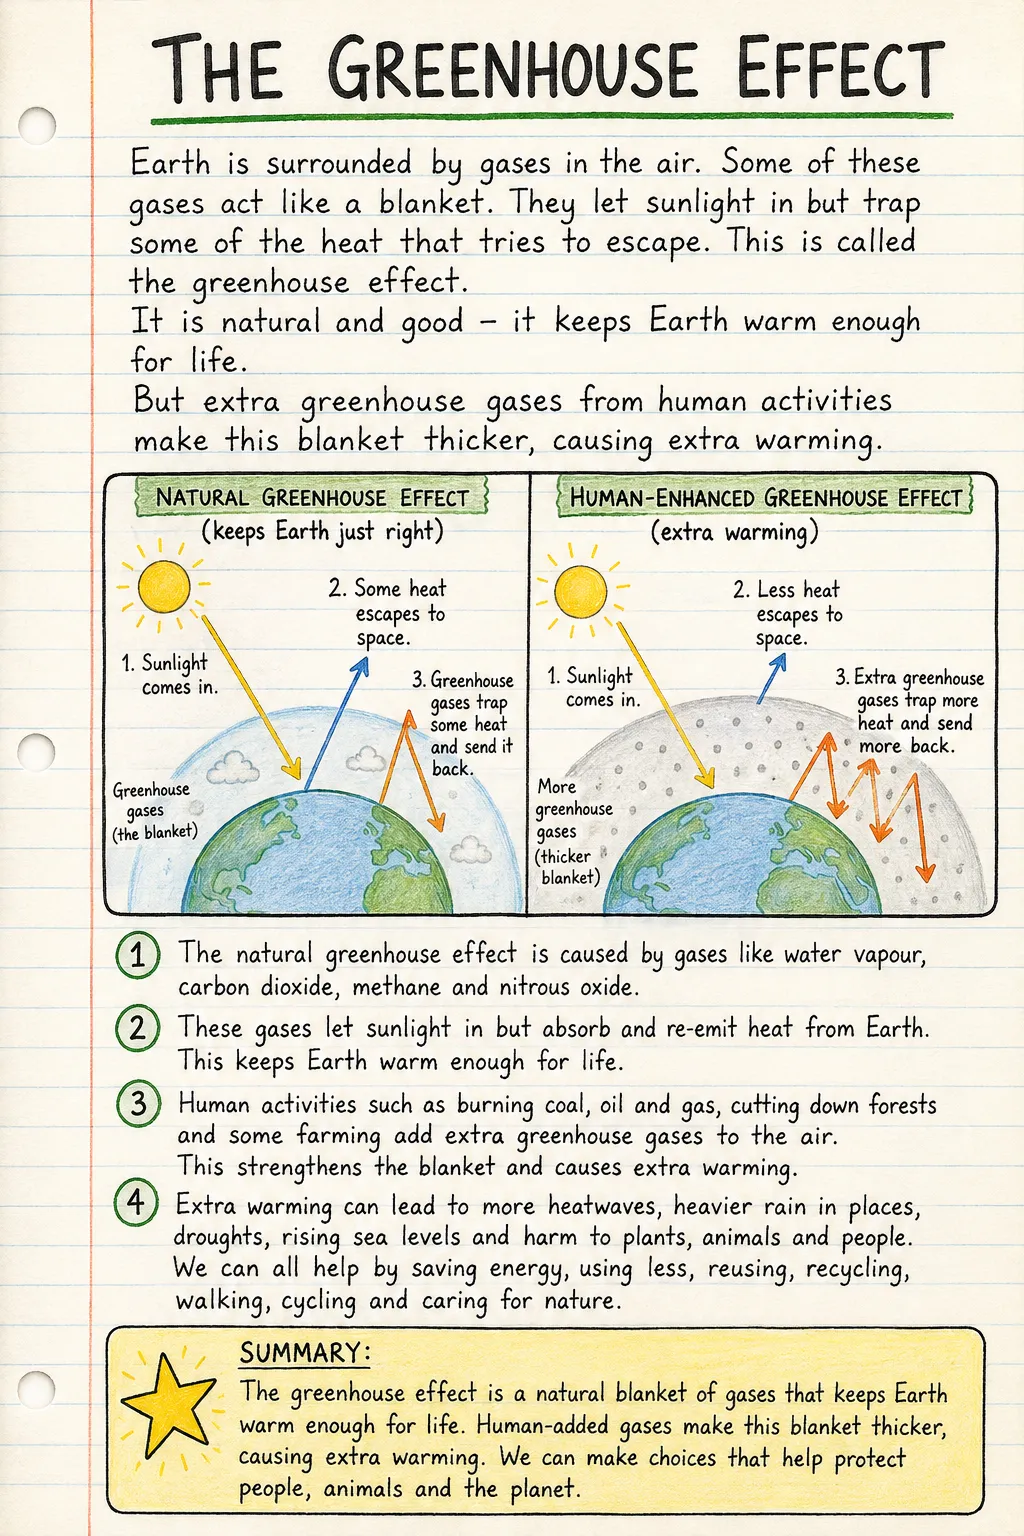 THE GREENHOUSE EFFECT
Earth is surrounded by gases in the air. Some of these
gases act like a blanket. They let sunlight in but trap
some of the heat that tries to escape. This is called
the greenhouse effect.
It is natural and good – it keeps Earth warm enough
for life.
But extra greenhouse gases from human activities
make this blanket thicker, causing extra warming.
NATURAL GREENHOUSE EFFECT
(keeps Earth just right)
2. Some heat
escapes to
space.
1. Sunlight
comes in.
3. Greenhouse
gases trap
some heat
and send it
back.
Greenhouse
gases
(the blanket)
HUMAN-ENHANCED GREENHOUSE EFFECT
(extra warming)
2. Less heat
escapes to
space.
1. Sunlight
comes in.
3. Extra greenhouse
gases trap more
heat and send
more back.
More
greenhouse
gases
(thicker
blanket)
1 The natural greenhouse effect is caused by gases like water vapour,
carbon dioxide, methane and nitrous oxide.
2 These gases let sunlight in but absorb and re-emit heat from Earth.
This keeps Earth warm enough for life.
3 Human activities such as burning coal, oil and gas, cutting down forests
and some farming add extra greenhouse gases to the air.
This strengthens the blanket and causes extra warming.
4 Extra warming can lead to more heatwaves, heavier rain in places,
droughts, rising sea levels and harm to plants, animals and people.
We can all help by saving energy, using less, reusing, recycling,
walking, cycling and caring for nature.
SUMMARY:
The greenhouse effect is a natural blanket of gases that keeps Earth
warm enough for life. Human-added gases make this blanket thicker,
causing extra warming. We can make choices that help protect
people, animals and the planet.